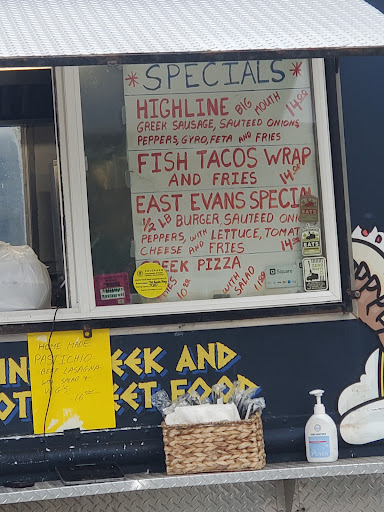 * SPECIALS *
HIGHLINE BIG MOUTH 14.00
GREEK SAUSAGE, SAUTEED ONIONS
PEPPERS, GYRO, FETA AND FRIES
FISH TACOS WRAP
AND FRIES 14.00
EAST EVANS SPECIAL
1/2 LB BURGER, SAUTEED ONI
PEPPERS, WITH LETTUCE, TOMAT
CHEESE AND FRIES 14.00
EEK PIZZA
WITH SALAD
Square
HOME MADE
PASTICHIO
BEEF LASAGNA
SALAD +
16.00
EEK AND
EET FOOD